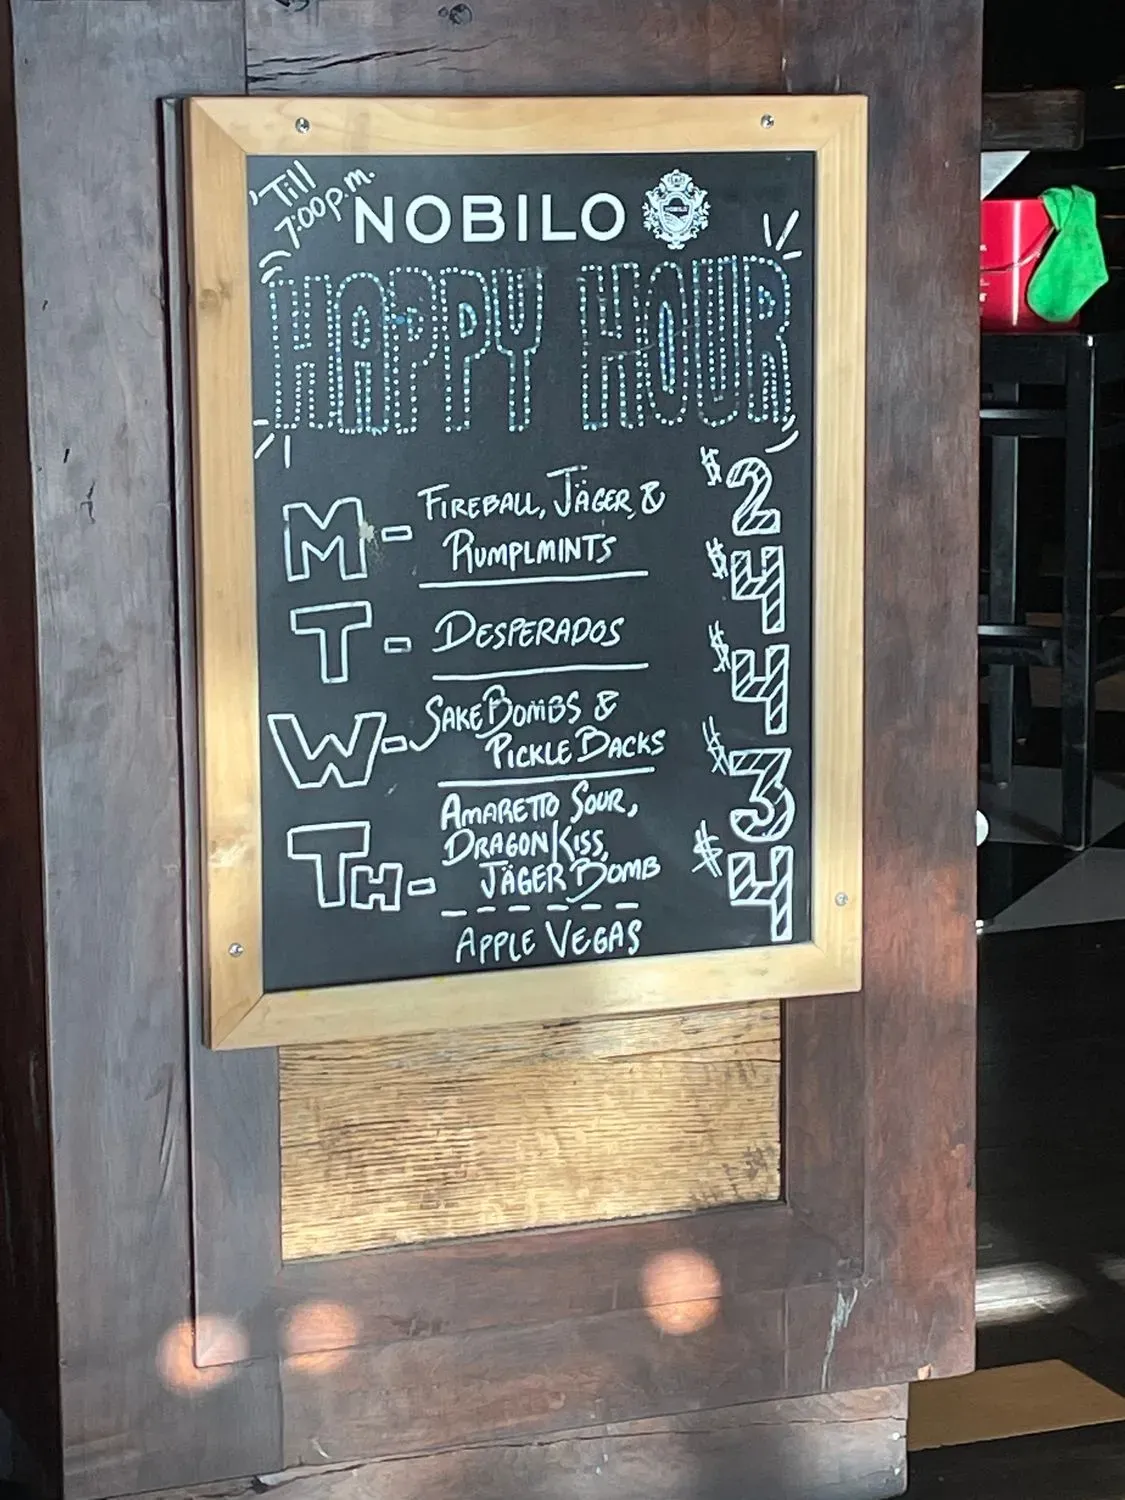 'Till
7:00p.m.
NOBILO
HAPPY HOUR
M- FIREBALL, JÄGER, & $2
RUMPLMINTS
T- DESPERADOS $4
W- SAKE BOMBS & $4
PICKLE BACKS
TH- AMARETTO SOUR, $3
DRAGON KISS,
JÄGER BOMB
APPLE VEGAS $4